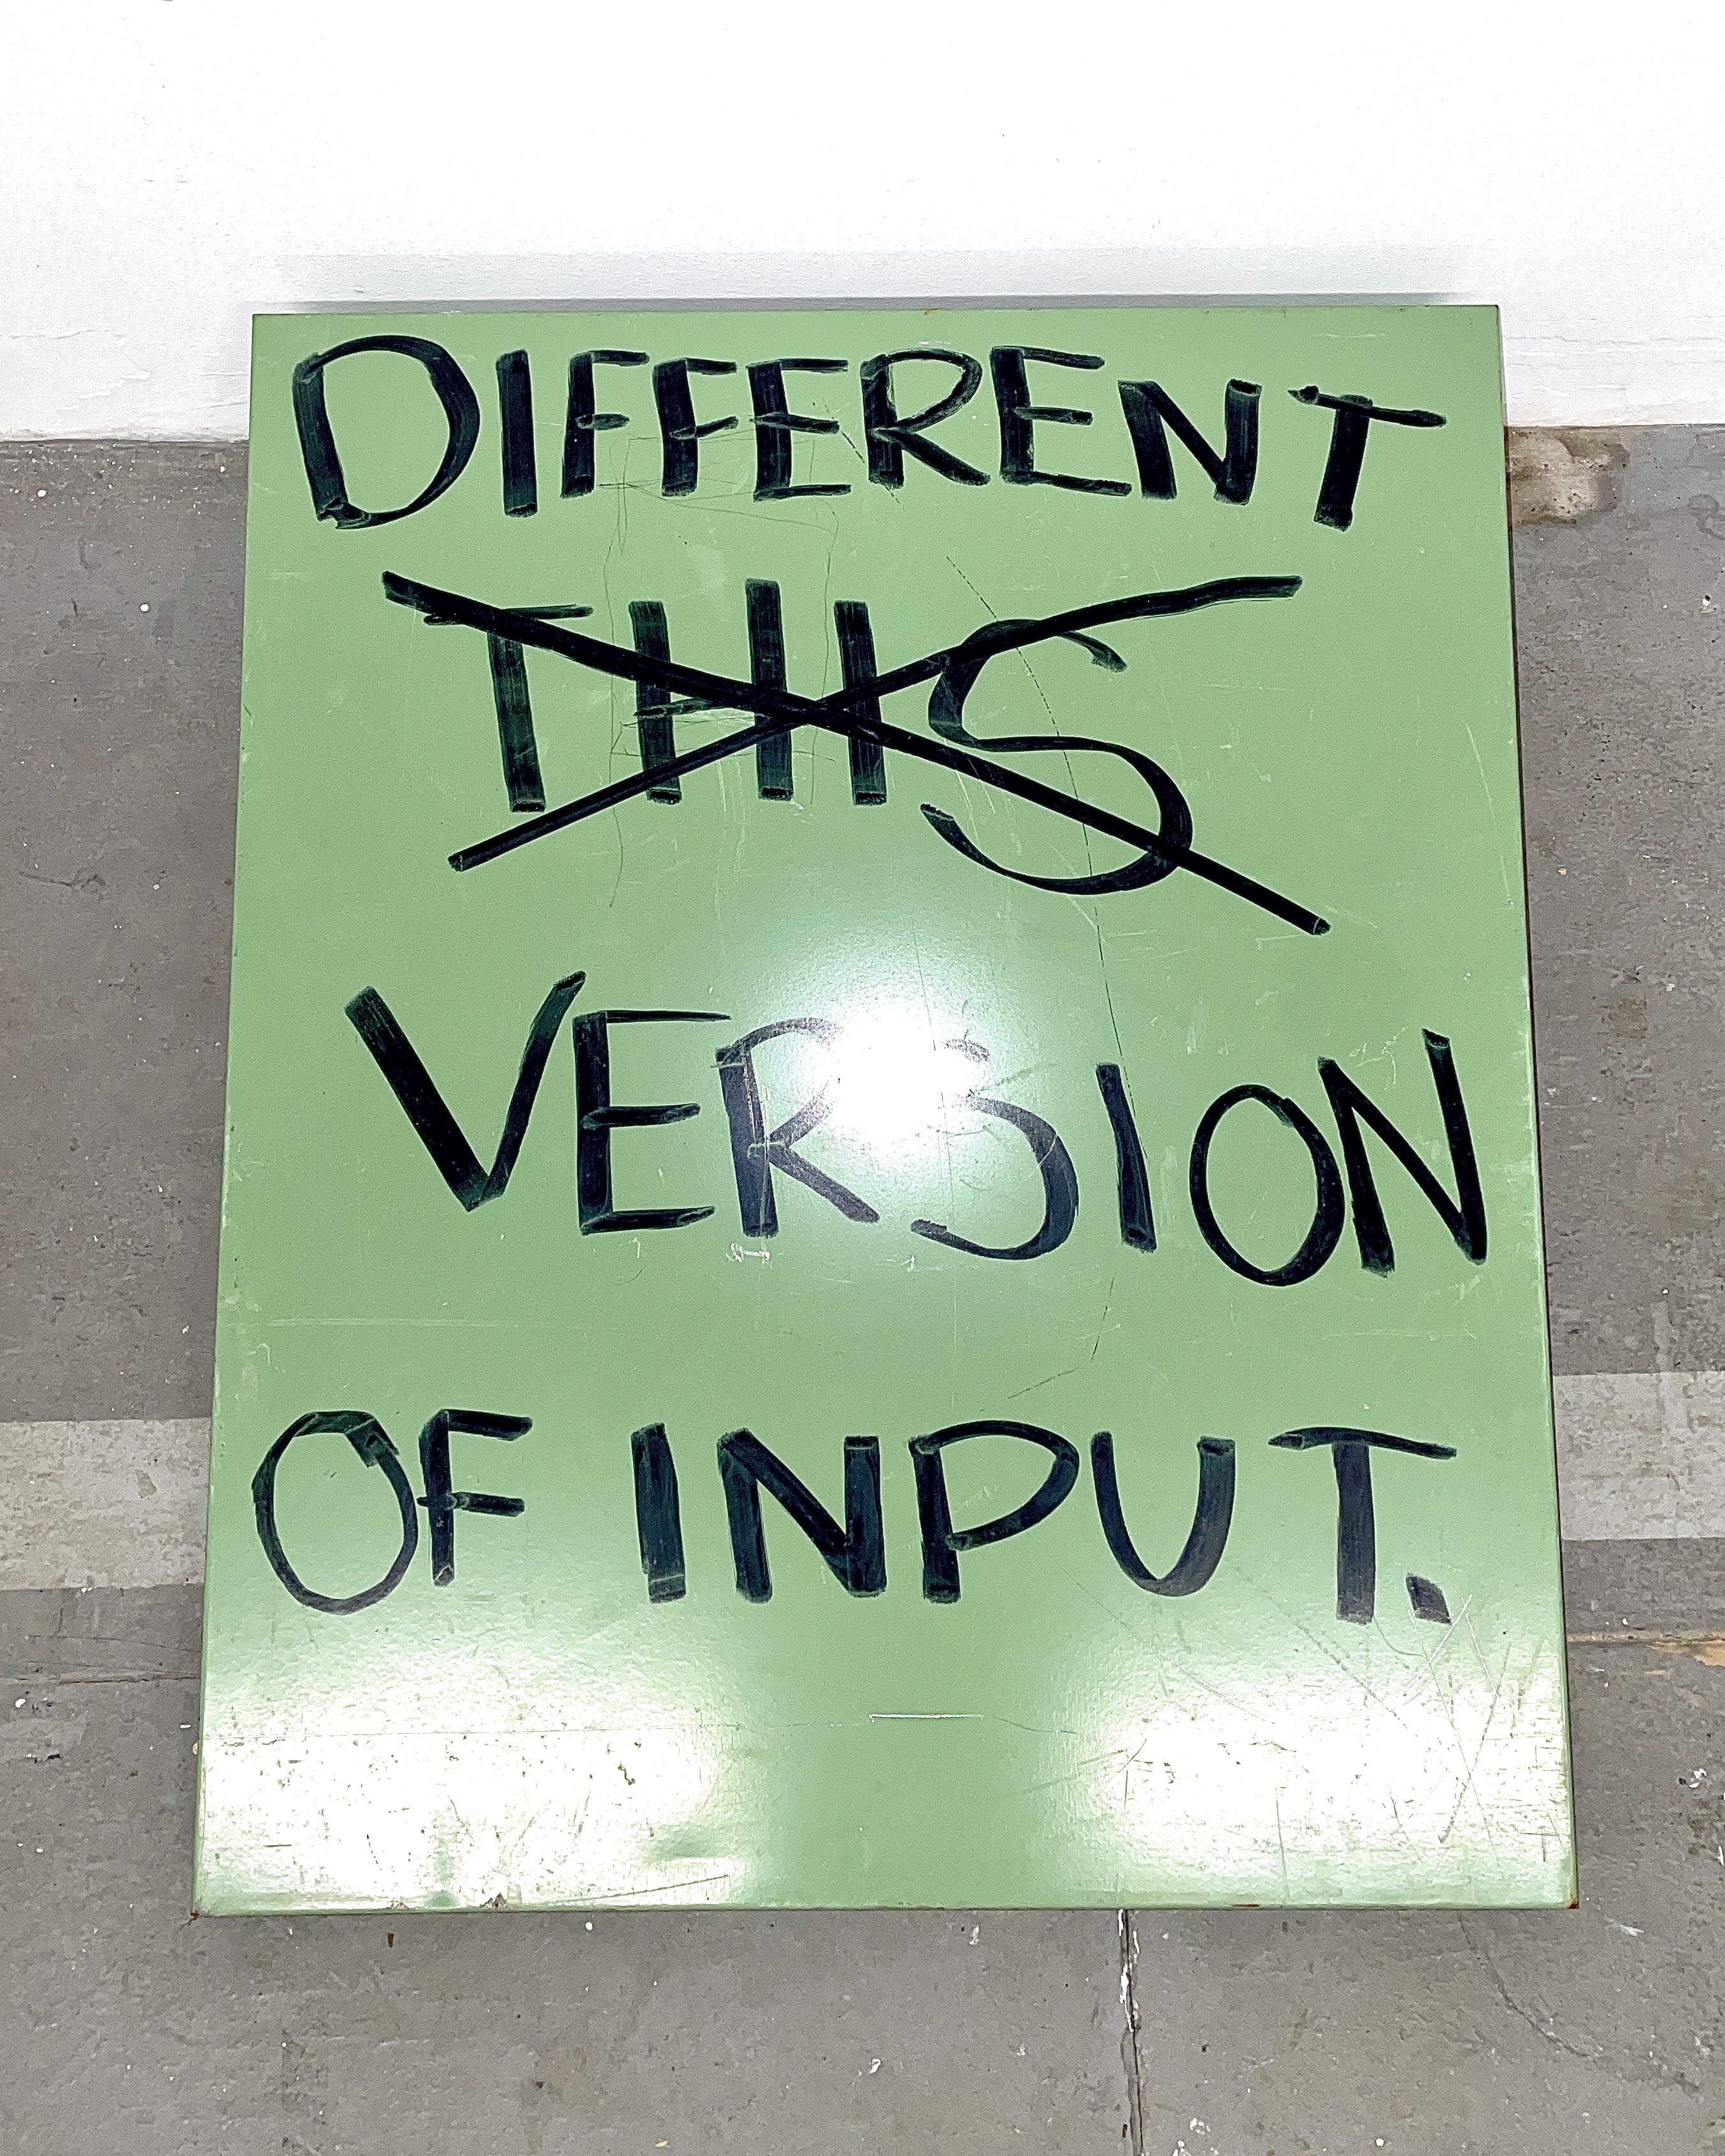 DIFFERENT
THIS
VERSION
OF INPUT.